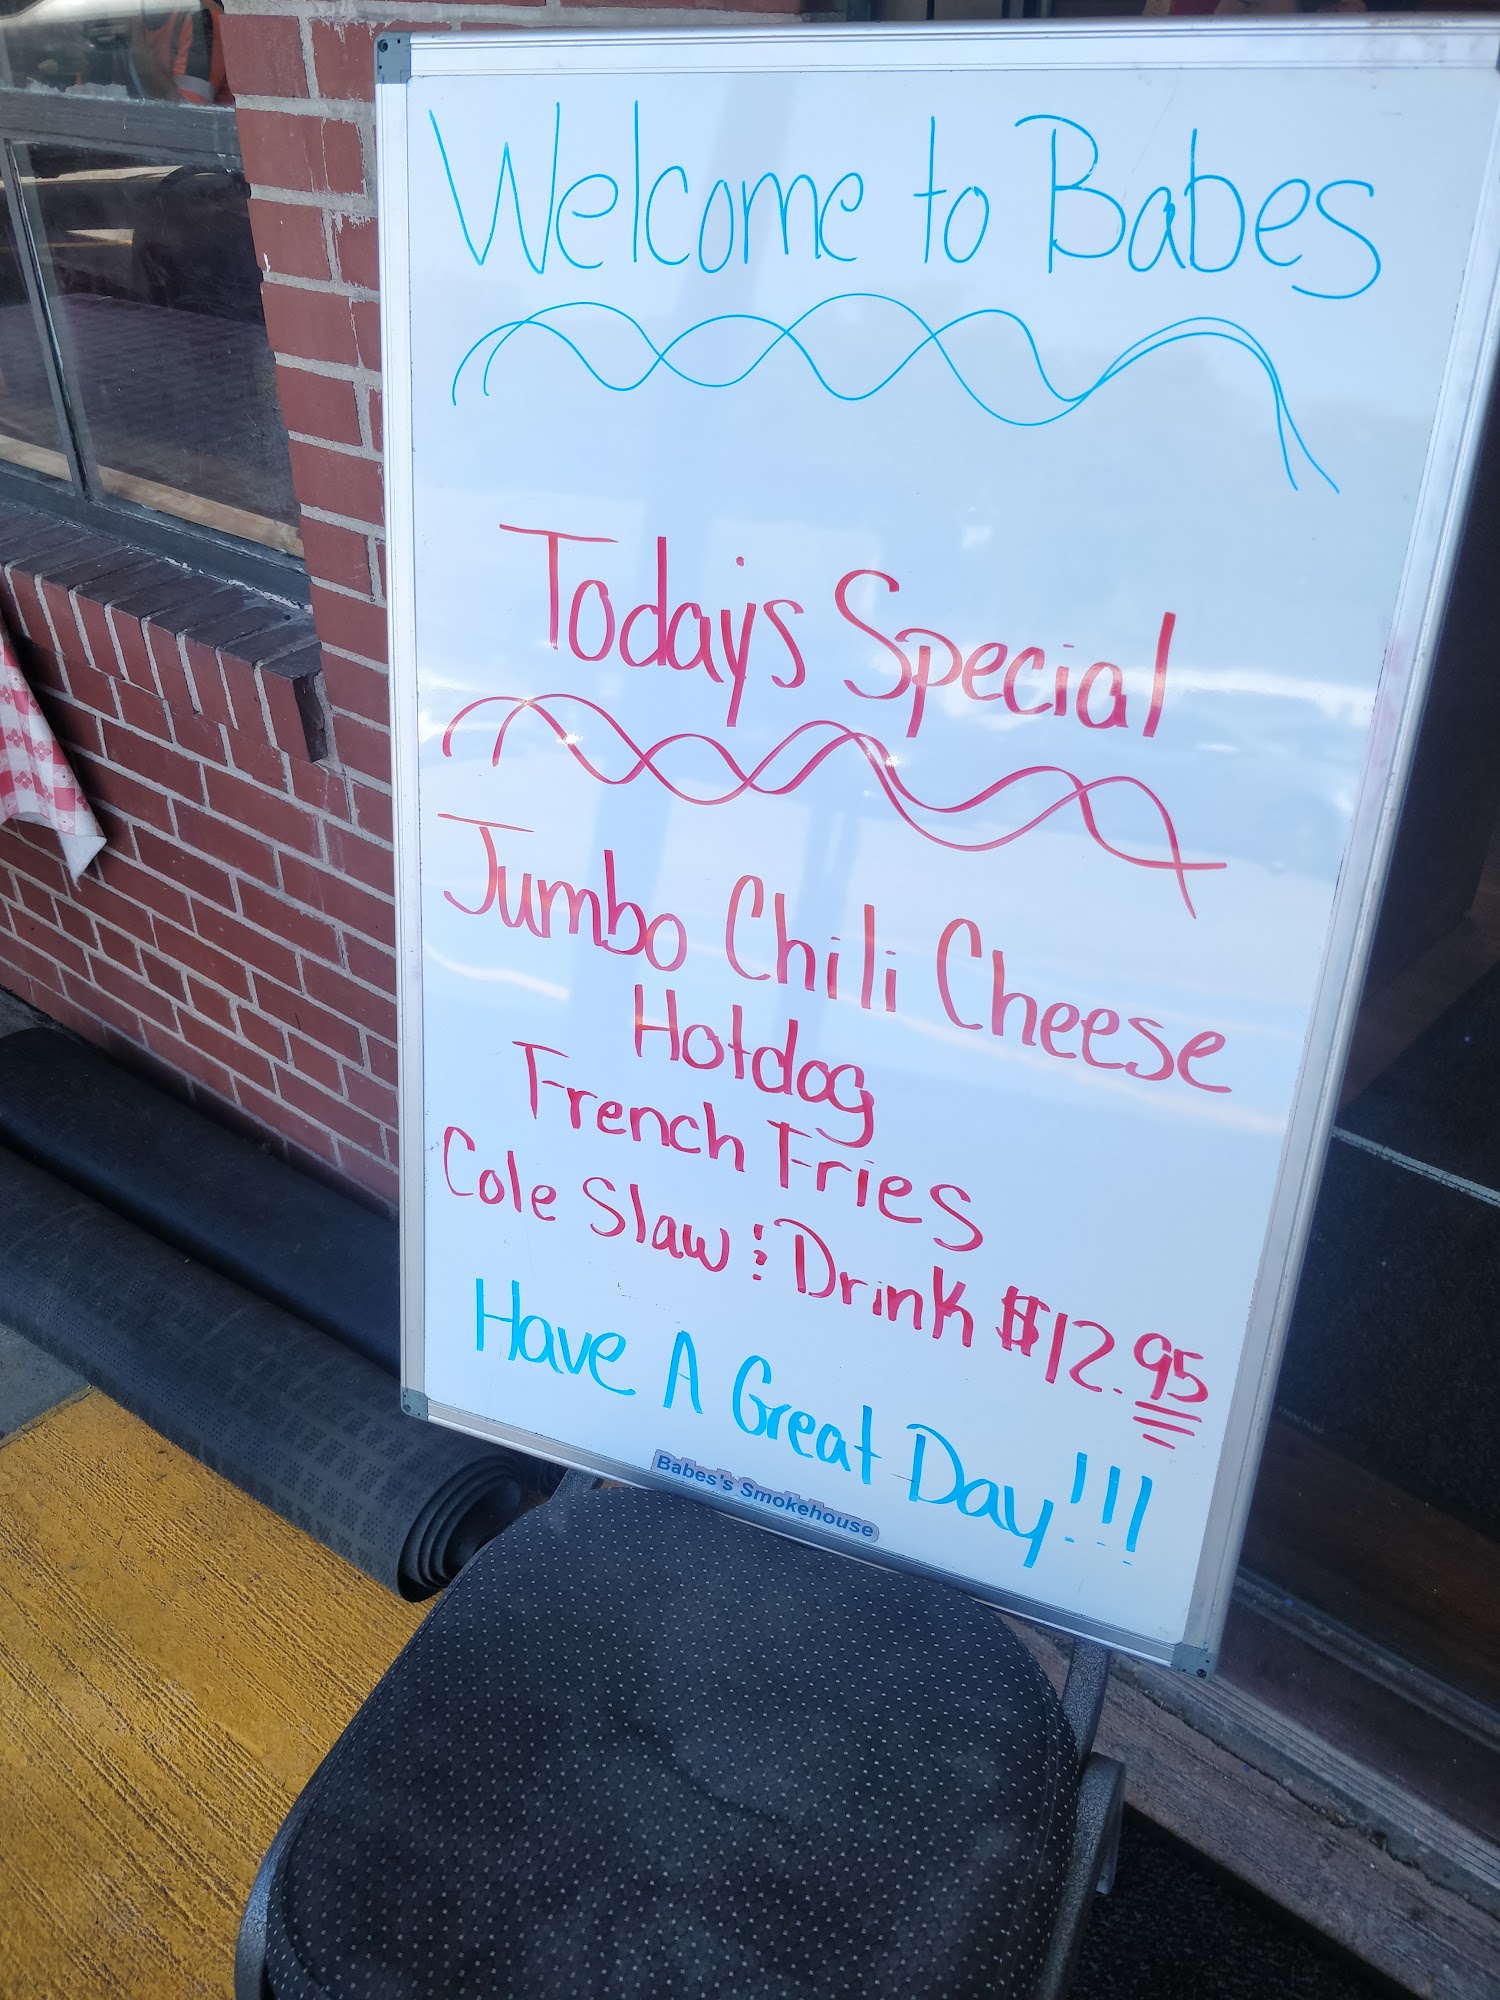 Welcome to Babes
Today's Special
Jumbo Chili Cheese
Hotdog
French Fries
Cole Slaw & Drink $12.95
Have A Great Day!!!
Babes's Smokehouse